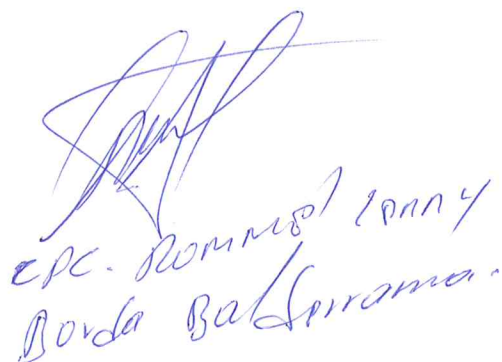 CPC. Rommel Lenny
Borda Balderrama.